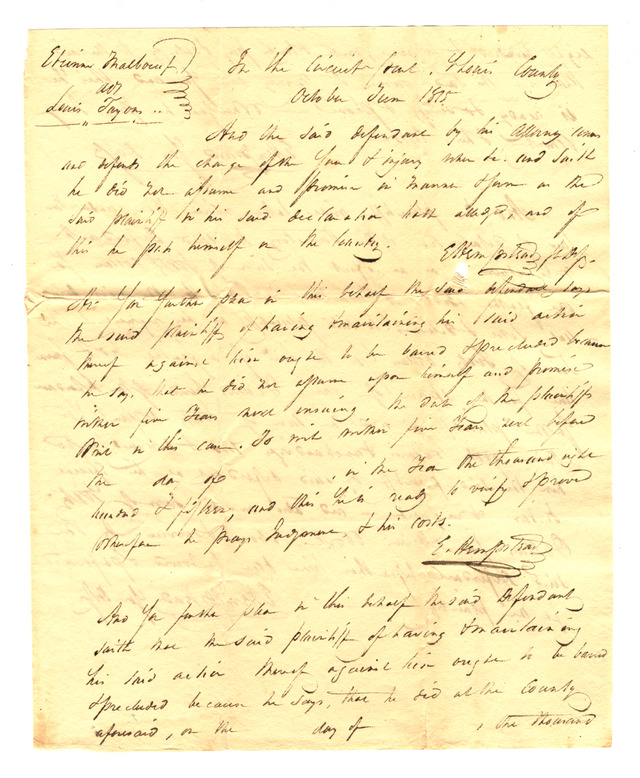 Etienne Malboeuf
ads
Louis Tayon
In the Circuit Court, St Louis County
October Term 1815
And the said defendant by his attorney comes
and defends the charge of the force & injury when &c. and saith
he did not assume and promise in manner & form as the
said plaintiff in his said declaration hath alledged, and of
this he puts himself on the Country.
E Hempstead
And for further plea in this behalf the said defendant says
the said plaintiff of having & maintaining his said action
thereof against him ought to be barred & precluded because
he says that he did not assume upon himself and promise
within five Years next ensuing the date of the plaintiffs
Writ in this case. To wit within five Years next before
the day of , in the Year One thousand eight
hundred & fifteen, and this he is ready to verify & prove
Wherefore he prays Judgment, & his costs.
E. Hempstead
And for further plea in this behalf the said Defendant
saith that the said plaintiff of having & maintaining
his said action thereof against him ought to be barred
& precluded because he says, that he did at the County
aforesaid, on the day of , One thousand